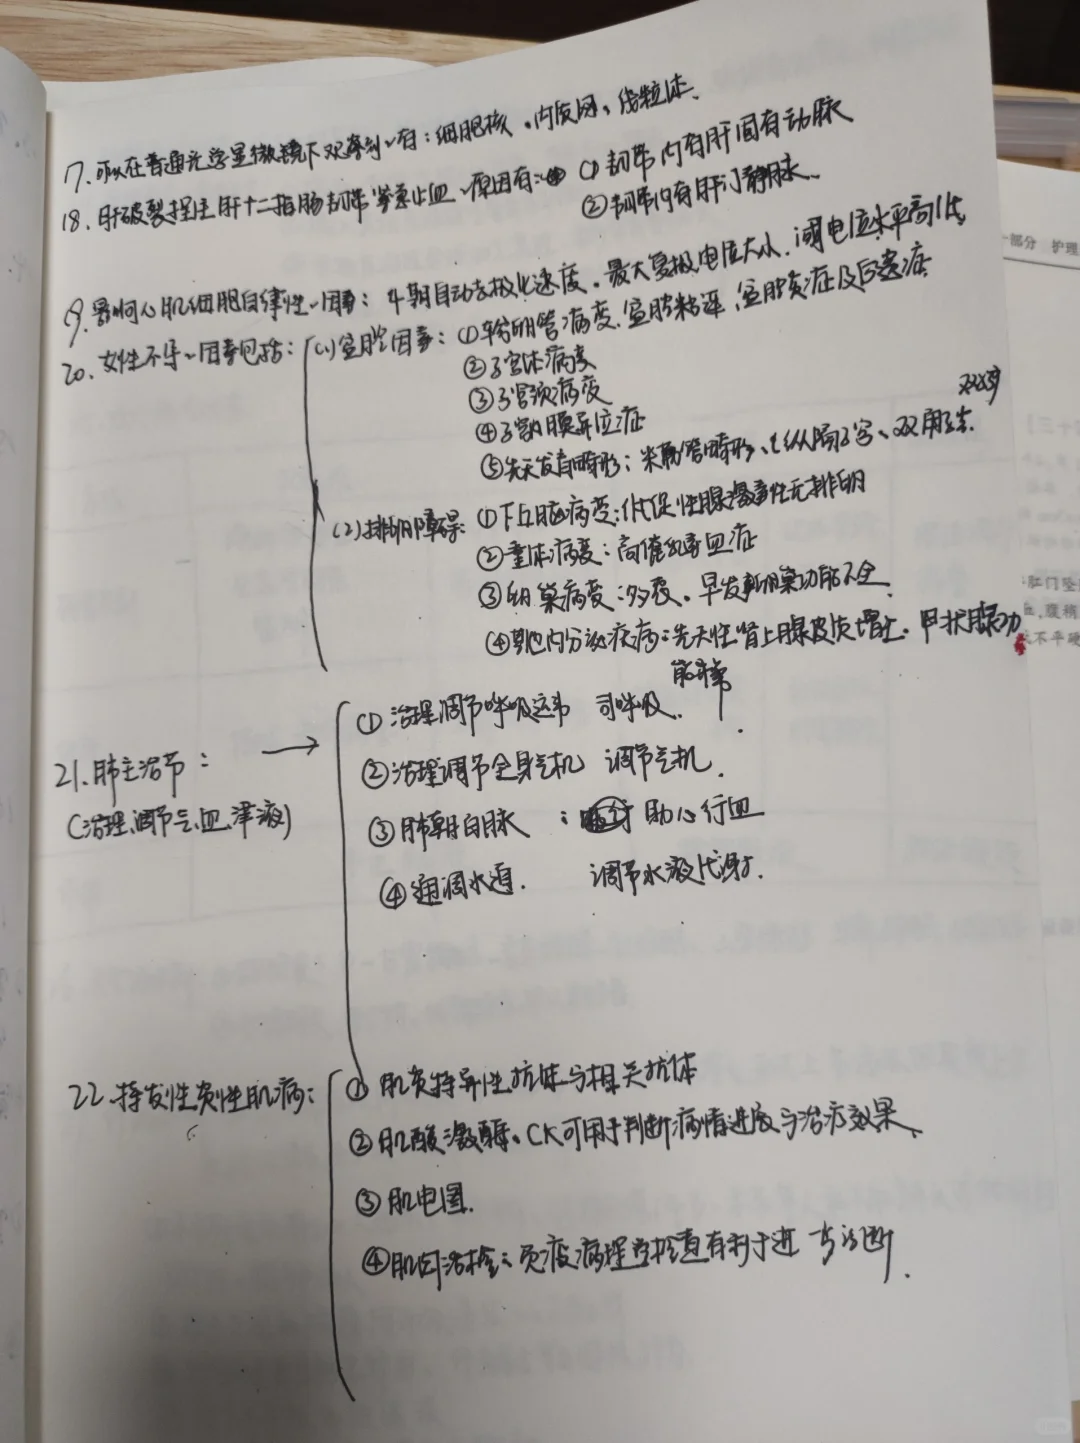 17、可以在普通光学显微镜下观察到的有：细胞核、内质网、线粒体、
18、肝破裂捏住肝十二指肠韧带紧急止血的原因有：① 韧带内有肝固有动脉
② 韧带内有肝门静脉、
19、影响心肌细胞自律性的因素：4期自动去极化速度、最大复极电位大小、阈电位水平高低
20、女性不孕的因素包括：
(1)盆腔因素：①输卵管病变、盆腔粘连、盆腔炎症及后遗症
②子宫体病变
③子宫颈病变
④子宫内膜异位症
⑤先天发育畸形：米勒管畸形、纵隔子宫、双角子宫
(2)排卵障碍：①下丘脑病变：低促性腺激素性无排卵
②垂体病变：高催乳素血症
③卵巢病变：多囊、早发卵巢功能不全
④其他内分泌疾病：先天性肾上腺皮质增生、甲状腺功
能异常
21、肺主治节：
(治理、调节气、血、津液)
→ ①治理调节呼吸运动 司呼吸、
②治理调节全身气机 调节气机、
③肺朝百脉 ： 助心行血
④通调水道、 调节水液代谢、
22、特发性炎性肌病：
①肌炎特异性抗体与相关抗体
②肌酸激酶、CK可用于判断病情进展与治疗效果、
③肌电图
④肌肉活检：免疫病理学检查有利于进一步诊断
一部分 护理
十三】
肛门坠
不平硬